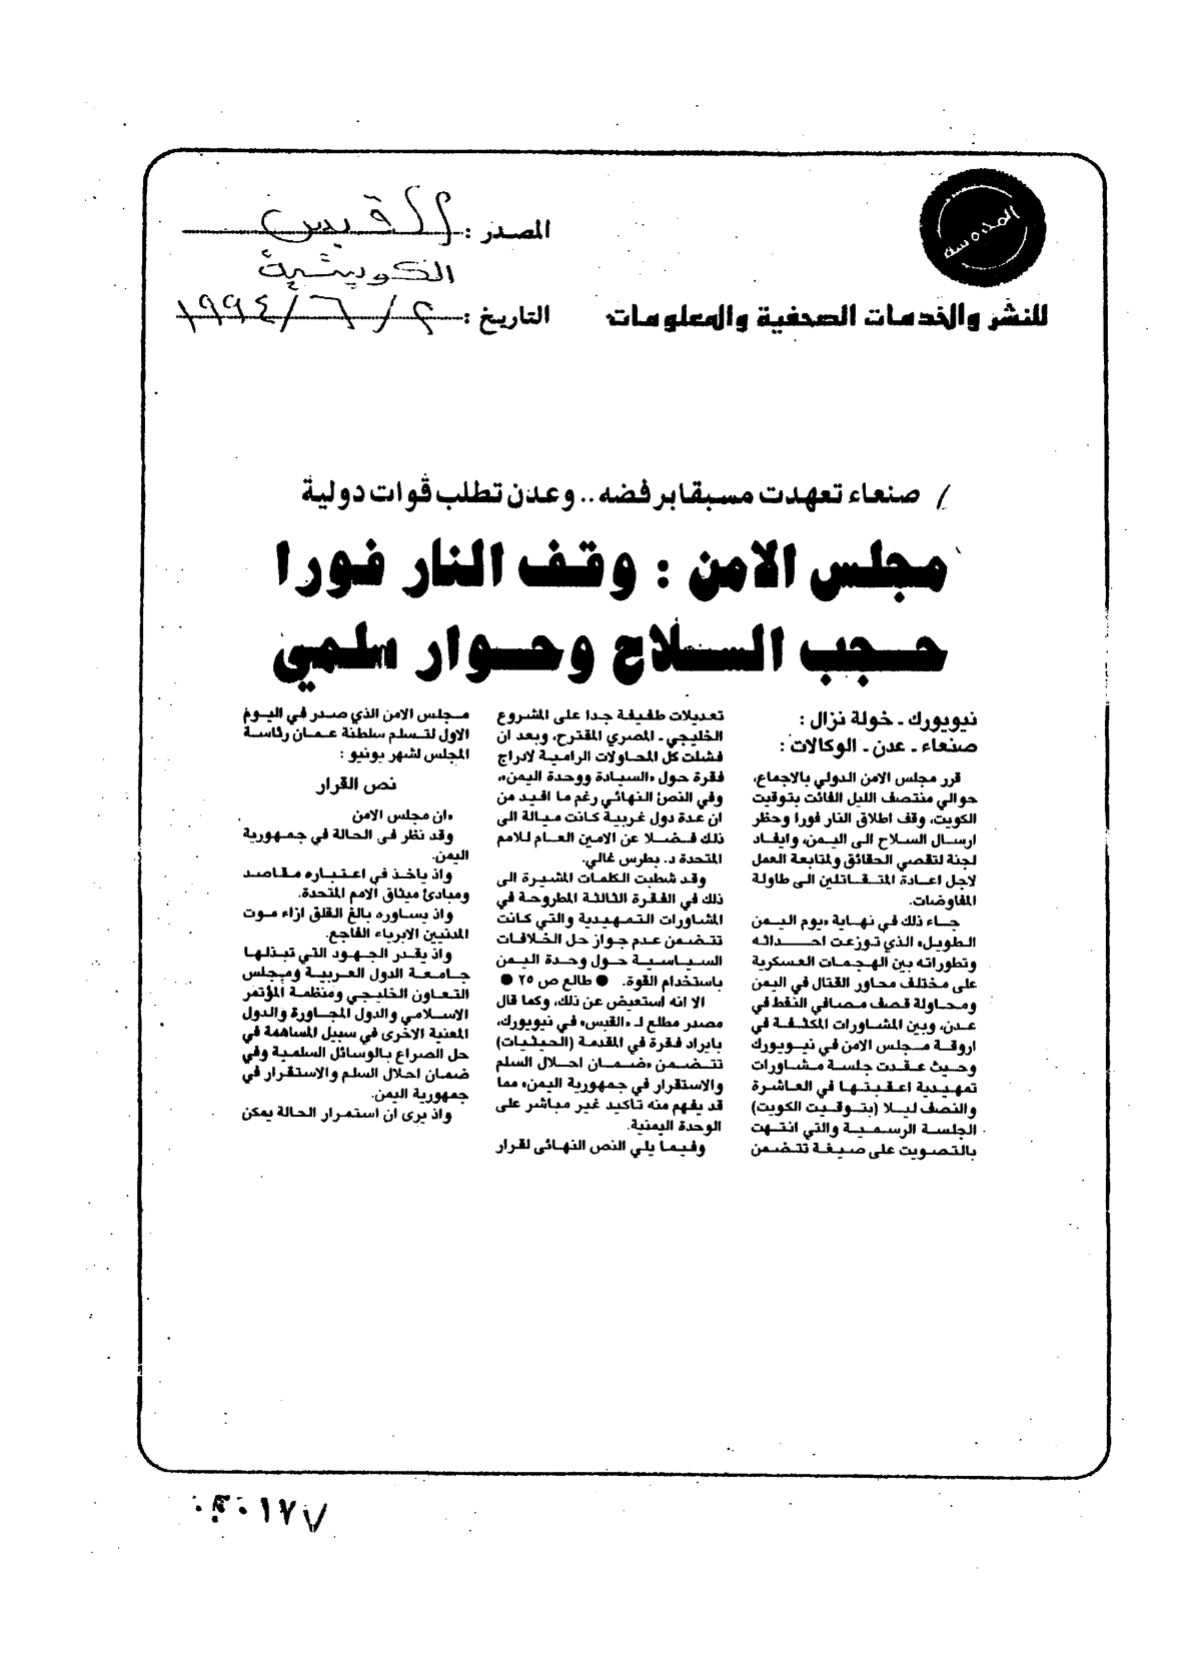 المصدر : القبس
الكويتية
التاريخ : ٢ / ٦ / ١٩٩٤
للنشر والخدمات الصحفية والمعلومات
صنعاء تعهدت مسبقا برفضه .. وعدن تطلب قوات دولية
مجلس الامن : وقف النار فورا
حجب السلاح وحوار سلمي
نيويورك ـ خولة نزال :
صنعاء ـ عدن ـ الوكالات :
قرر مجلس الامن الدولي بالاجماع،
حوالي منتصف الليل الفائت بتوقيت
الكويت، وقف اطلاق النار فورا وحظر
ارسال السلاح الى اليمن، وايفاد
لجنة لتقصي الحقائق ولمتابعة العمل
لاجل اعادة المتقاتلين الى طاولة
المفاوضات.
جاء ذلك في نهاية «يوم اليمن
الطويل» الذي توزعت احداثه
وتطوراته بين الهجمات العسكرية
على مختلف محاور القتال في اليمن
ومحاولة قصف مصافي النفط في
عدن، وبين المشاورات المكثفة في
اروقة مجلس الامن في نيويورك
وحيث عقدت جلسة مشاورات
تمهيدية اعقبتها في العاشرة
والنصف ليلا (بتوقيت الكويت)
الجلسة الرسمية والتي انتهت
بالتصويت على صيغة تتضمن
تعديلات طفيفة جدا على المشروع
الخليجي ـ المصري المقترح، وبعد ان
فشلت كل المحاولات الرامية لادراج
فقرة حول «السيادة ووحدة اليمن»،
وفي النص النهائي رغم ما افيد من
ان عدة دول غربية كانت ميالة الى
ذلك فضلا عن الامين العام للامم
المتحدة د. بطرس غالي.
وقد شطبت الكلمات المشيرة الى
ذلك في الفقرة الثالثة المطروحة في
المشاورات التمهيدية والتي كانت
تتضمن عدم جواز حل الخلافات
السياسية حول وحدة اليمن
باستخدام القوة. ● طالع ص ٢٥ ●
الا انه استعيض عن ذلك، وكما قال
مصدر مطلع لـ «القبس» في نيويورك،
بايراد فقرة في المقدمة (الحيثيات)
تتضمن «ضمان احلال السلم
والاستقرار في جمهورية اليمن» مما
قد يفهم منه تاكيد غير مباشر على
الوحدة اليمنية.
وفيما يلي النص النهائي لقرار
مجلس الامن الذي صدر في اليوم
الاول لتسلم سلطنة عمان رئاسة
المجلس لشهر يونيو :
نص القرار
«ان مجلس الامن
وقد نظر في الحالة في جمهورية
اليمن.
واذ ياخذ في اعتباره مقاصد
ومبادئ ميثاق الامم المتحدة.
واذ يساوره بالغ القلق ازاء موت
المدنيين الابرياء الفاجع.
واذ يقدر الجهود التي تبذلها
جامعة الدول العربية ومجلس
التعاون الخليجي ومنظمة المؤتمر
الاسلامي والدول المجاورة والدول
المعنية الاخرى في سبيل المساهمة في
حل الصراع بالوسائل السلمية وفي
ضمان احلال السلم والاستقرار في
جمهورية اليمن.
واذ يرى ان استمرار الحالة يمكن